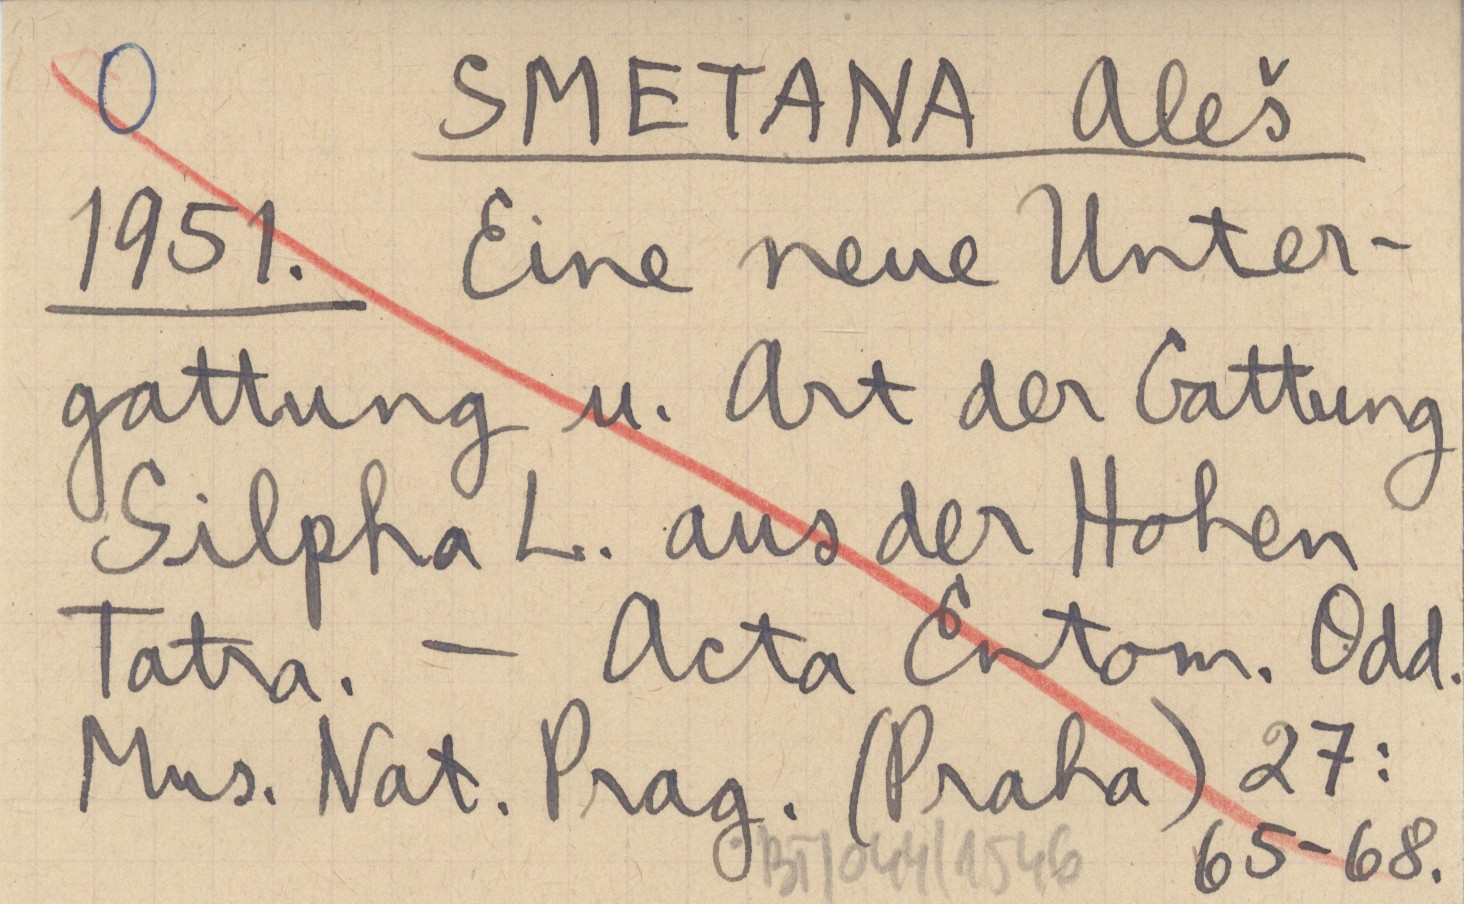 O SMETANA Aleš
1951. Eine neue Unter-
gattung u. Art der Gattung
Silpha L. aus der Hohen
Tatra. — Acta Entom. Odd.
Mus. Nat. Prag. (Praha) 27:
65-68.
BT/044/1546